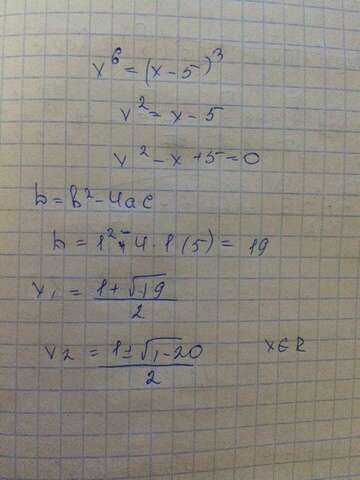 x⁶ = (x - 5)³
x² = x - 5
x² - x + 5 = 0
D = b² - 4ac
D = 1² - 4 · 1 (5) = 19
x₁ = (1 + √-19) / 2
x₂ = (1 ± √1 - 20) / 2 x ∈ R